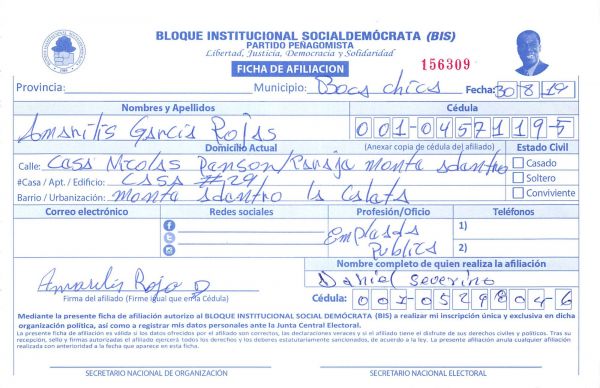 BLOQUE INSTITUCIONAL SOCIALDEMÓCRATA (BIS)
PARTIDO PEÑAGOMISTA
Libertad, Justicia, Democracia y Solidaridad
FICHA DE AFILIACION
156309
Provincia: Municipio: Boca chica Fecha: 30 8 19
Nombres y Apellidos Cédula
Amarilis Garcia Rojas 001-0457119-5
Domicilio Actual (Anexar copia de cédula del afiliado) Estado Civil
Calle: Casa Nicolas monta adentro Casado
#Casa / Apt. / Edificio: CASA #29 Soltero
Barrio / Urbanización: monta adentro la caleta Conviviente
Correo electrónico Redes sociales Profesión/Oficio Teléfonos
Empleada 1)
Publica 2)
Nombre completo de quien realiza la afiliación
Amarilis Rojo Daniel Severino
Firma del afiliado (Firme igual que en la Cédula) Cédula: 001-0529804-6
Mediante la presente ficha de afiliación autorizo al BLOQUE INSTITUCIONAL SOCIAL DEMÓCRATA (BIS) a realizar mi inscripción única y exclusiva en dicha
organización política, así como a registrar mis datos personales ante la Junta Central Electoral.
La presente ficha de afiliación es valida si los datos ofrecidos por el afiliado son correctos, las declaraciones veraces y si el afiliado tiene el disfrute de sus derechos civiles y políticos. Tras su
recepción, sello y firmas autorizadas el afiliado ejercerá todos los derechos y los deberes estatutariamente sancionados, de acuerdo a la ley. La presente afiliación anula cualquier afiliación
realizada con anterioridad a la fecha que aparece en esta ficha.
SECRETARIO NACIONAL DE ORGANIZACIÓN SECRETARIO NACIONAL ELECTORAL